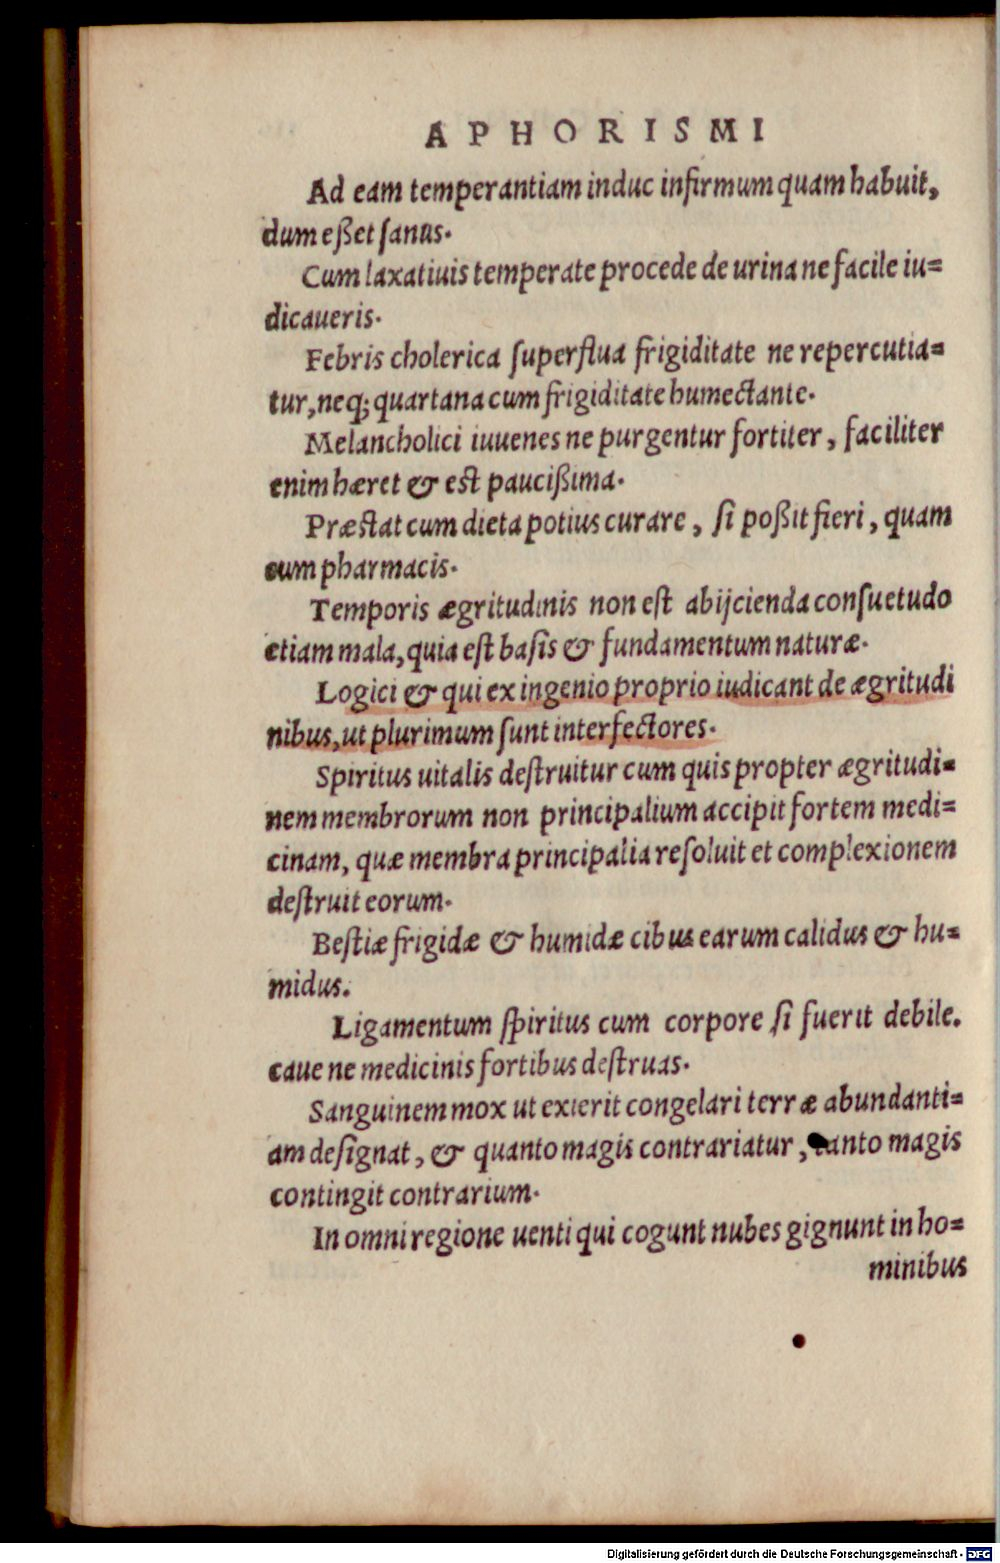 APHORISMI
Ad eam temperantiam induc infirmum quam habuit,
dum eßet ſanus.
Cum laxatiuis temperate procede de urina ne facile iu=
dicaueris.
Febris cholerica ſuperflua frigiditate ne repercutia=
tur, neq; quartana cum frigiditate humectante.
Melancholici iuuenes ne purgentur fortiter, faciliter
enim hæret & est paucißima.
Præstat cum dieta potius curare, ſi poßit fieri, quam
cum pharmacis.
Temporis ægritudinis non est abijcienda conſuetudo
etiam mala, quia eſt baſis & fundamentum naturæ.
Logici & qui ex ingenio proprio iudicant de ægritudi
nibus, ut plurimum ſunt interfectores.
Spiritus uitalis deſtruitur cum quis propter ægritudi=
nem membrorum non principalium accipit fortem medi=
cinam, quæ membra principalia reſoluit et complexionem
deſtruit eorum.
Beſtiæ frigidæ & humidæ cibus earum calidus & hu=
midus.
Ligamentum ſpiritus cum corpore ſi fuerit debile.
caue ne medicinis fortibus deſtruas.
Sanguinem mox ut exierit congelari terræ abundanti=
am deſignat, & quanto magis contrariatur, tanto magis
contingit contrarium.
In omni regione uenti qui cogunt nubes gignunt in ho=
minibus
Digitalisierung gefördert durch die Deutsche Forschungsgemeinschaft - DFG